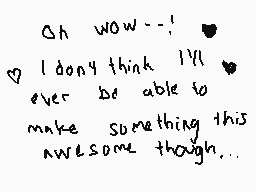 Oh wow--! ♥
♡ I don't think I'll ♥
ever be able to
make something this
awesome though...